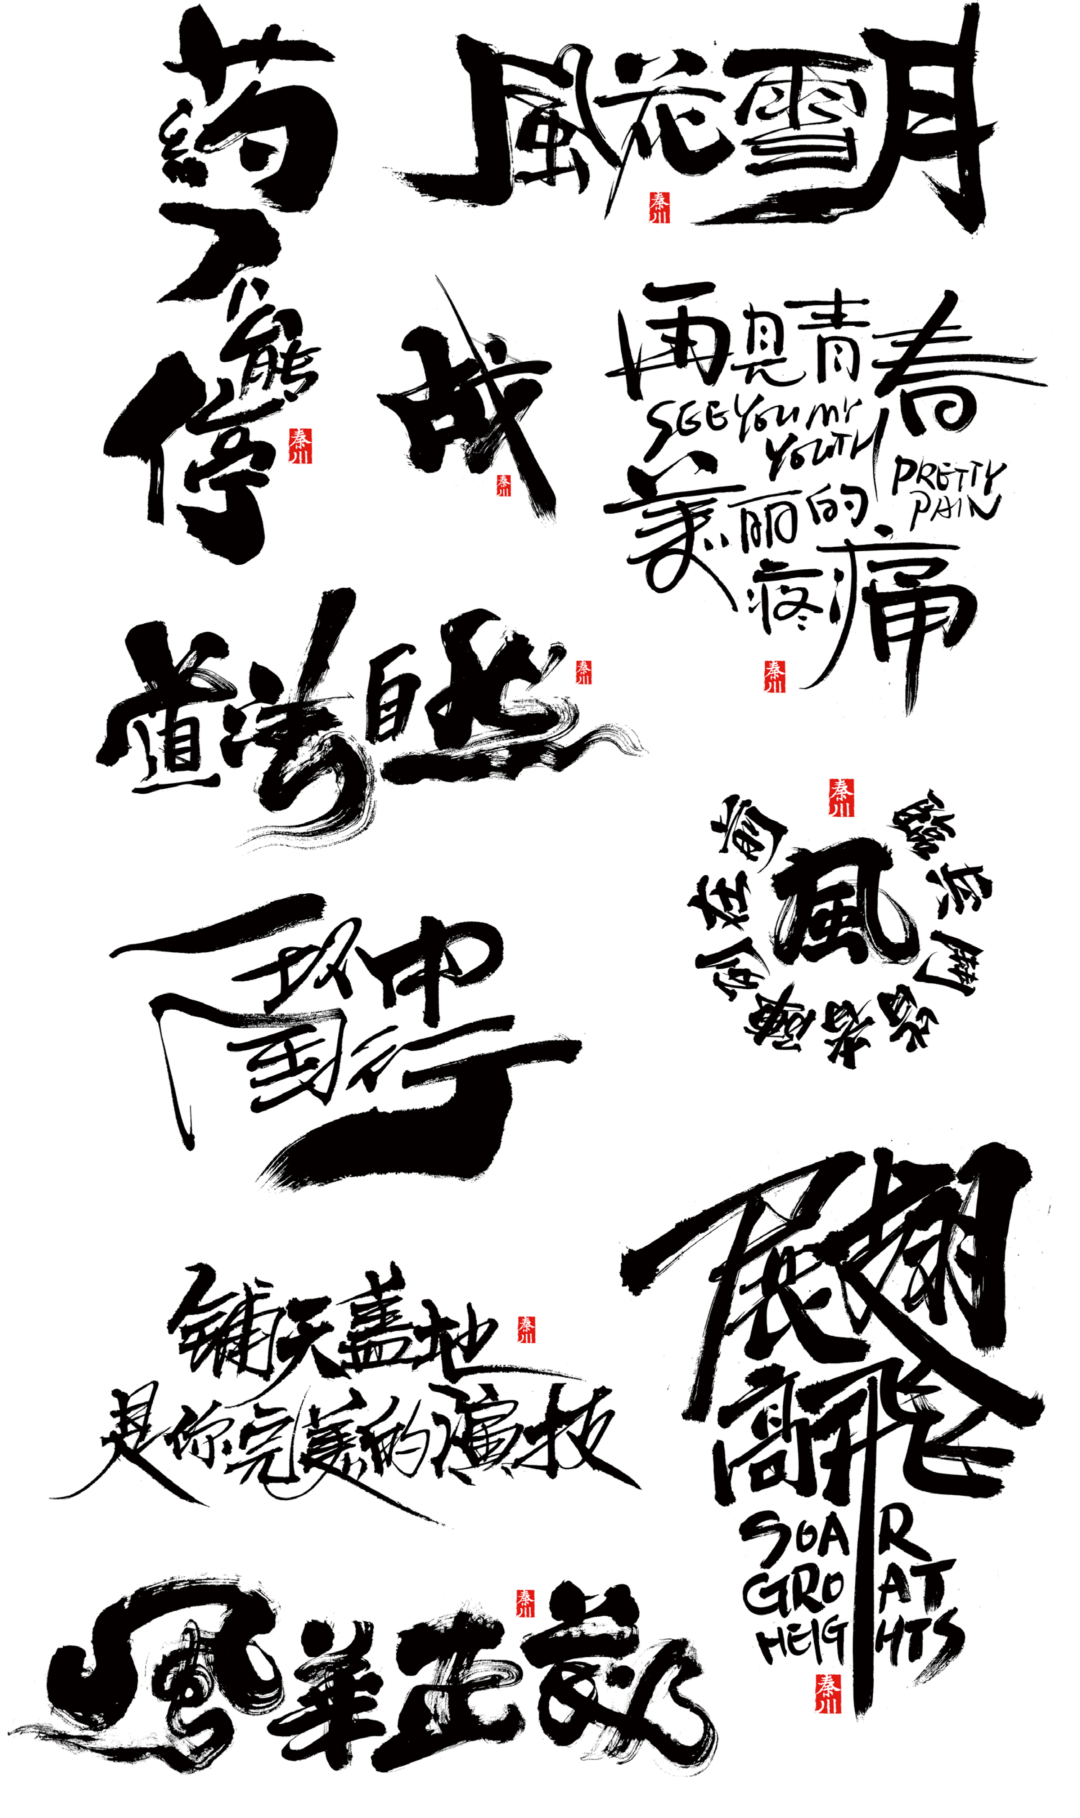 药
不能
停
秦川
風花雪月
秦川
战
秦川
再見青春
SEE YOU MY
YOUTH
美丽的
疼痛
PRETTY
PAIN
秦川
道法自然
秦川
秦川
風
臨兵鬥者皆陣列在前
铺天蓋地
秦川
是你完美的演技
展翅
高飛
SOAR
GROAT
HEIGHTS
秦川
風華正茂
秦川